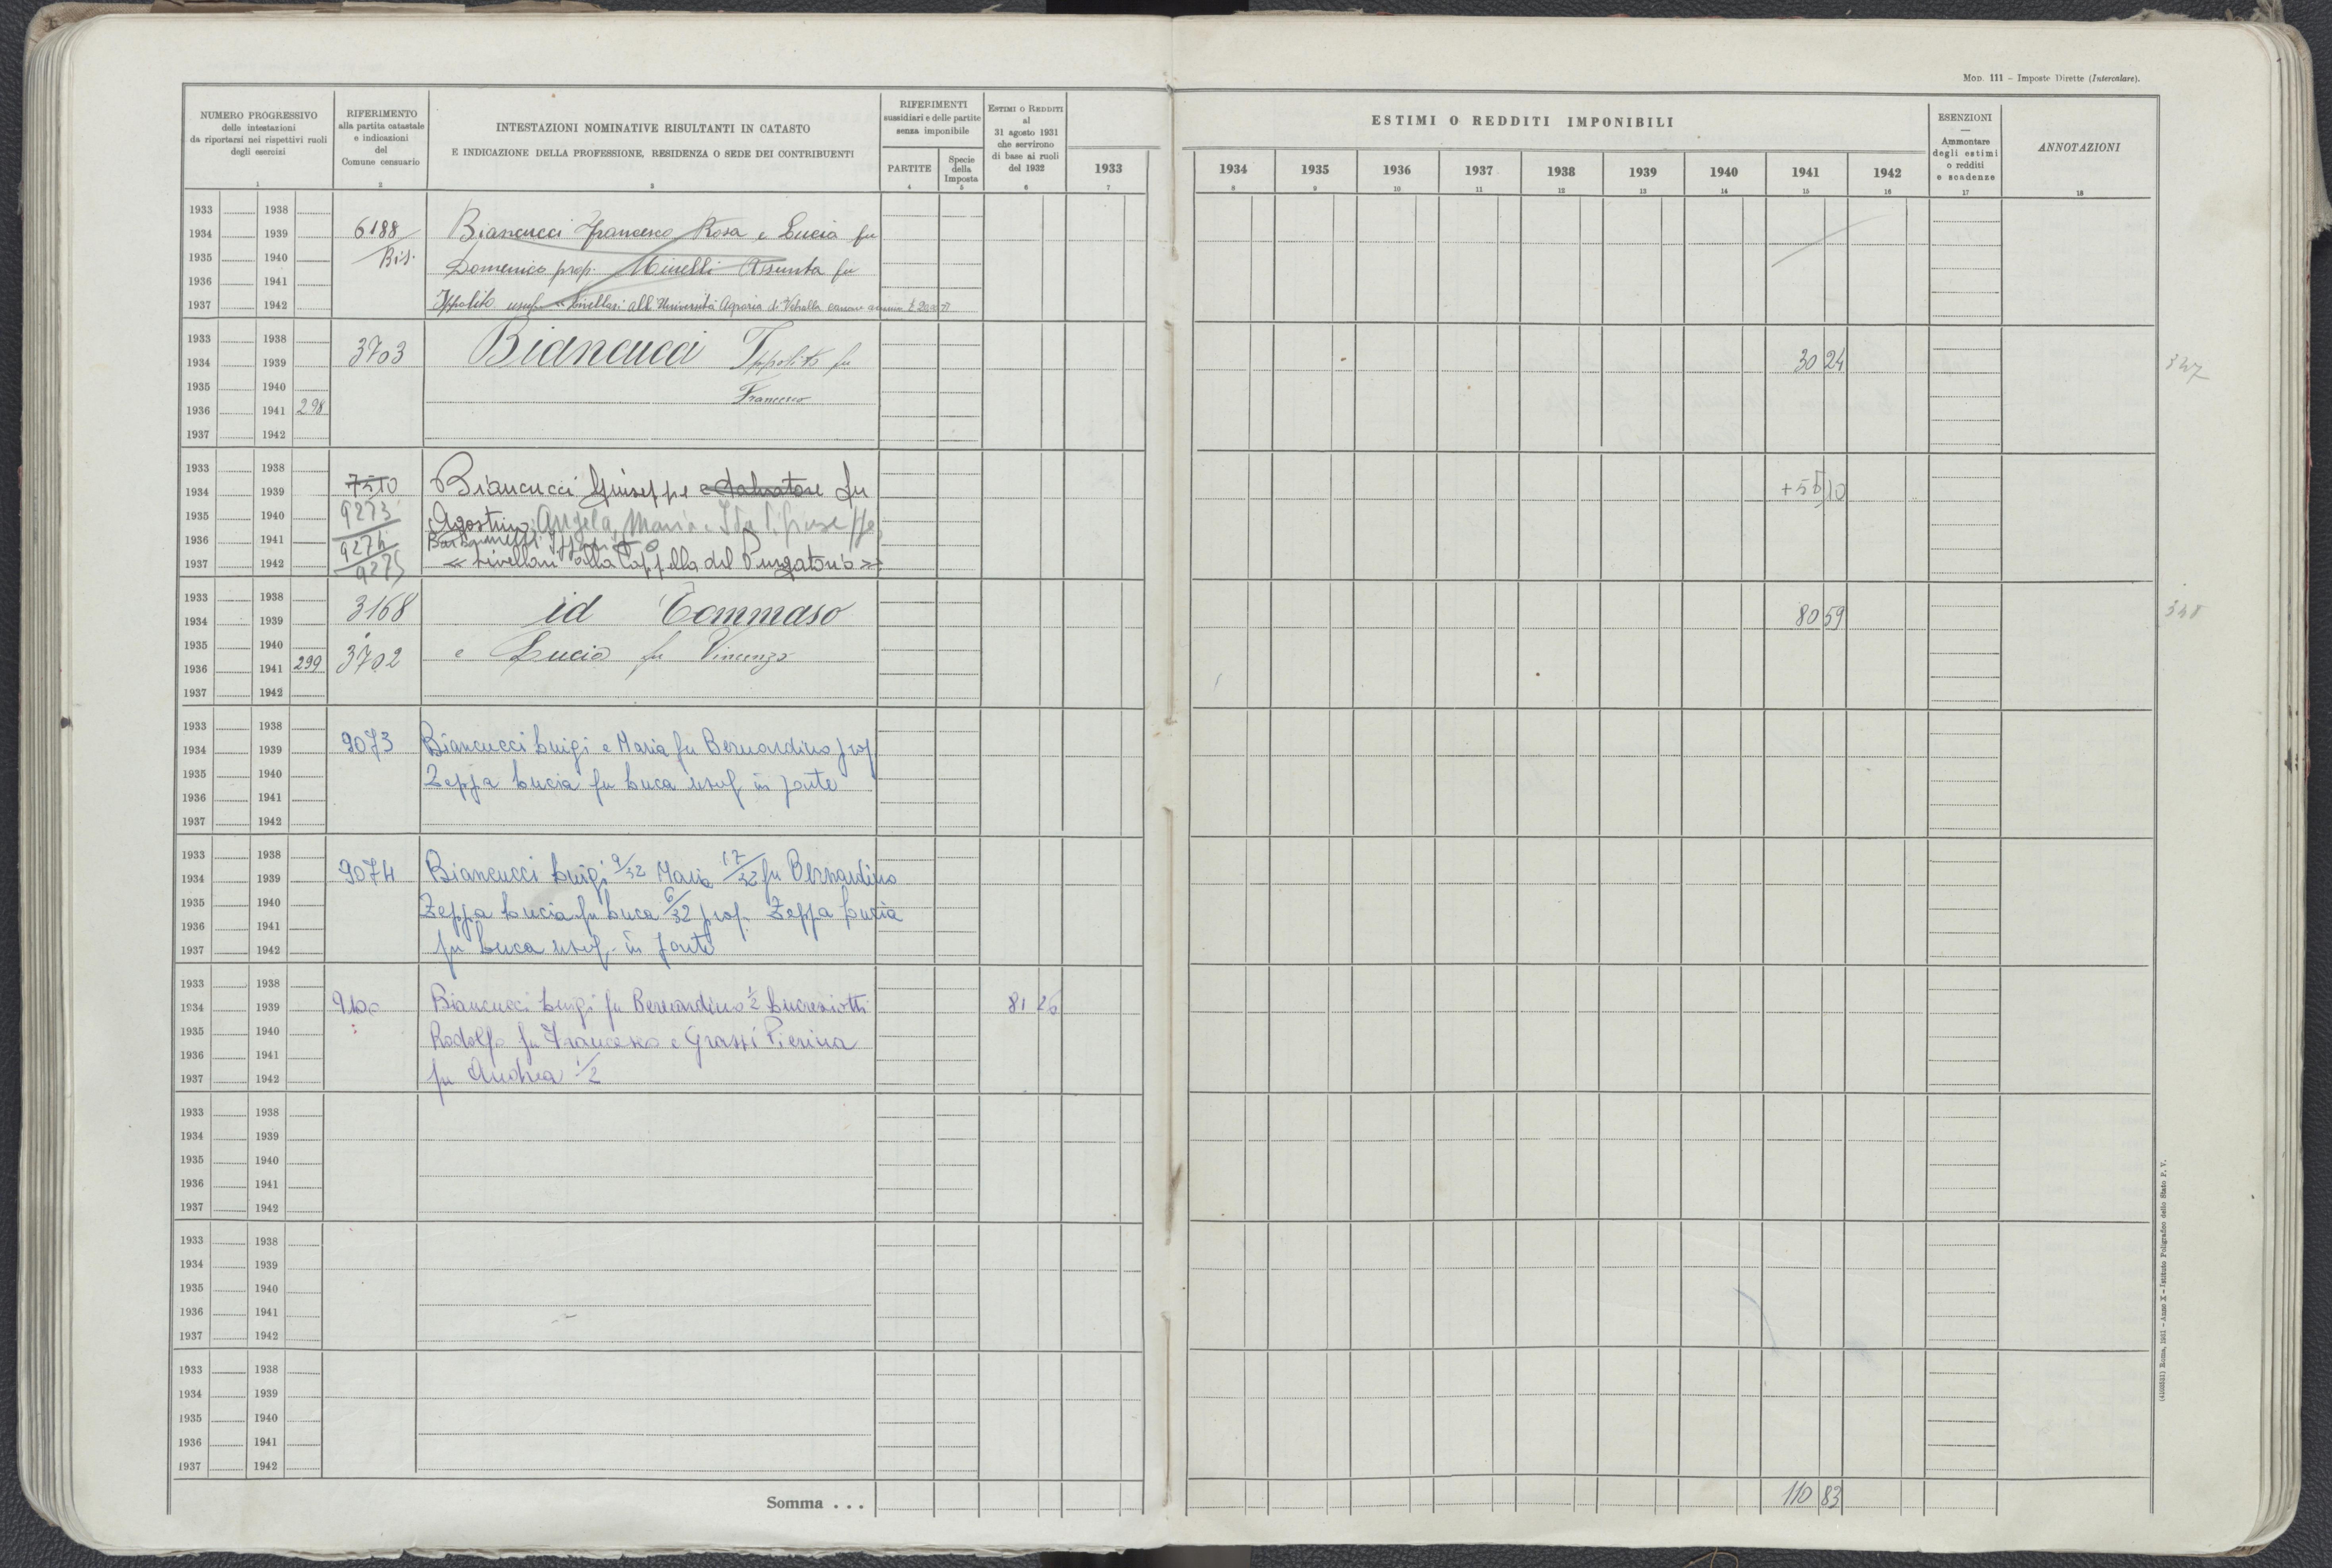 MOD. 111 – Imposte Dirette (Intercalare).
NUMERO PROGRESSIVO
delle intestazioni
da riportarsi nei rispettivi ruoli
degli esercizi
1
RIFERIMENTO
alla partita catastale
e indicazioni
del
Comune censuario
2
INTESTAZIONI NOMINATIVE RISULTANTI IN CATASTO
E INDICAZIONE DELLA PROFESSIONE, RESIDENZA O SEDE DEI CONTRIBUENTI
3
RIFERIMENTI
sussidiari e delle partite
senza imponibile
PARTITE
4
Specie
della
Imposta
5
ESTIMI O REDDITI
al
31 agosto 1931
che servirono
di base ai ruoli
del 1932
6
1933
7
ESTIMI O REDDITI IMPONIBILI
1934 1935 1936 1937 1938 1939 1940 1941 1942
8 9 10 11 12 13 14 15 16
ESENZIONI
—
Ammontare
degli estimi
o redditi
e scadenze
17
ANNOTAZIONI
18
1933 1938
1934 1939 6188 Biancucci Francesco Rosa e Lucia fu
1935 1940 Bis. Domenico prop. Minelli Assunta fu
1936 1941
1937 1942 Ippolito usuf. « livellari all'Università Agraria di Vetralla canone
1933 1938
1934 1939 3703 Biancucci Ippolito fu 30 24 347
1935 1940 Francesco
1936 1941 298
1937 1942
1933 1938
1934 1939 7510 Biancucci Giuseppe e Salvatore fu +5 10
1935 1940 9273 Agostino, Angela, Maria e Ida
1936 1941 9274
1937 1942 9275 « livellari alla Cappella del Purgatorio »
1933 1938 3168 id Tommaso
1934 1939 80 59 348
1935 1940 3702 e Lucia fu Vincenzo
1936 1941 299
1937 1942
1933 1938
1934 1939 9073 Biancucci Luigi e Maria fu Bernardino prop
1935 1940 Zeppa Lucia fu Luca usuf in parte
1936 1941
1937 1942
1933 1938
1934 1939 9074 Biancucci Luigi 9/32 Maria 17/32 fu Bernardino
1935 1940 Zeppa Lucia fu Luca 6/32 prop. Zeppa Lucia
1936 1941
1937 1942 fu Luca usuf. in parte
1933 1938
1934 1939 Biancucci Luigi fu Bernardino 1/2 Lucreziotti 81 26
1935 1940 Rodolfo fu Francesco e Grassi Pierina
1936 1941
1937 1942 fu Andrea 1/2
1933 1938
1934 1939
1935 1940
1936 1941
1937 1942
1933 1938
1934 1939
1935 1940
1936 1941
1937 1942
1933 1938
1934 1939
1935 1940
1936 1941
1937 1942
Somma . . . 110 83
Roma, 1931 – Anno X – Istituto Poligrafico dello Stato P. V.